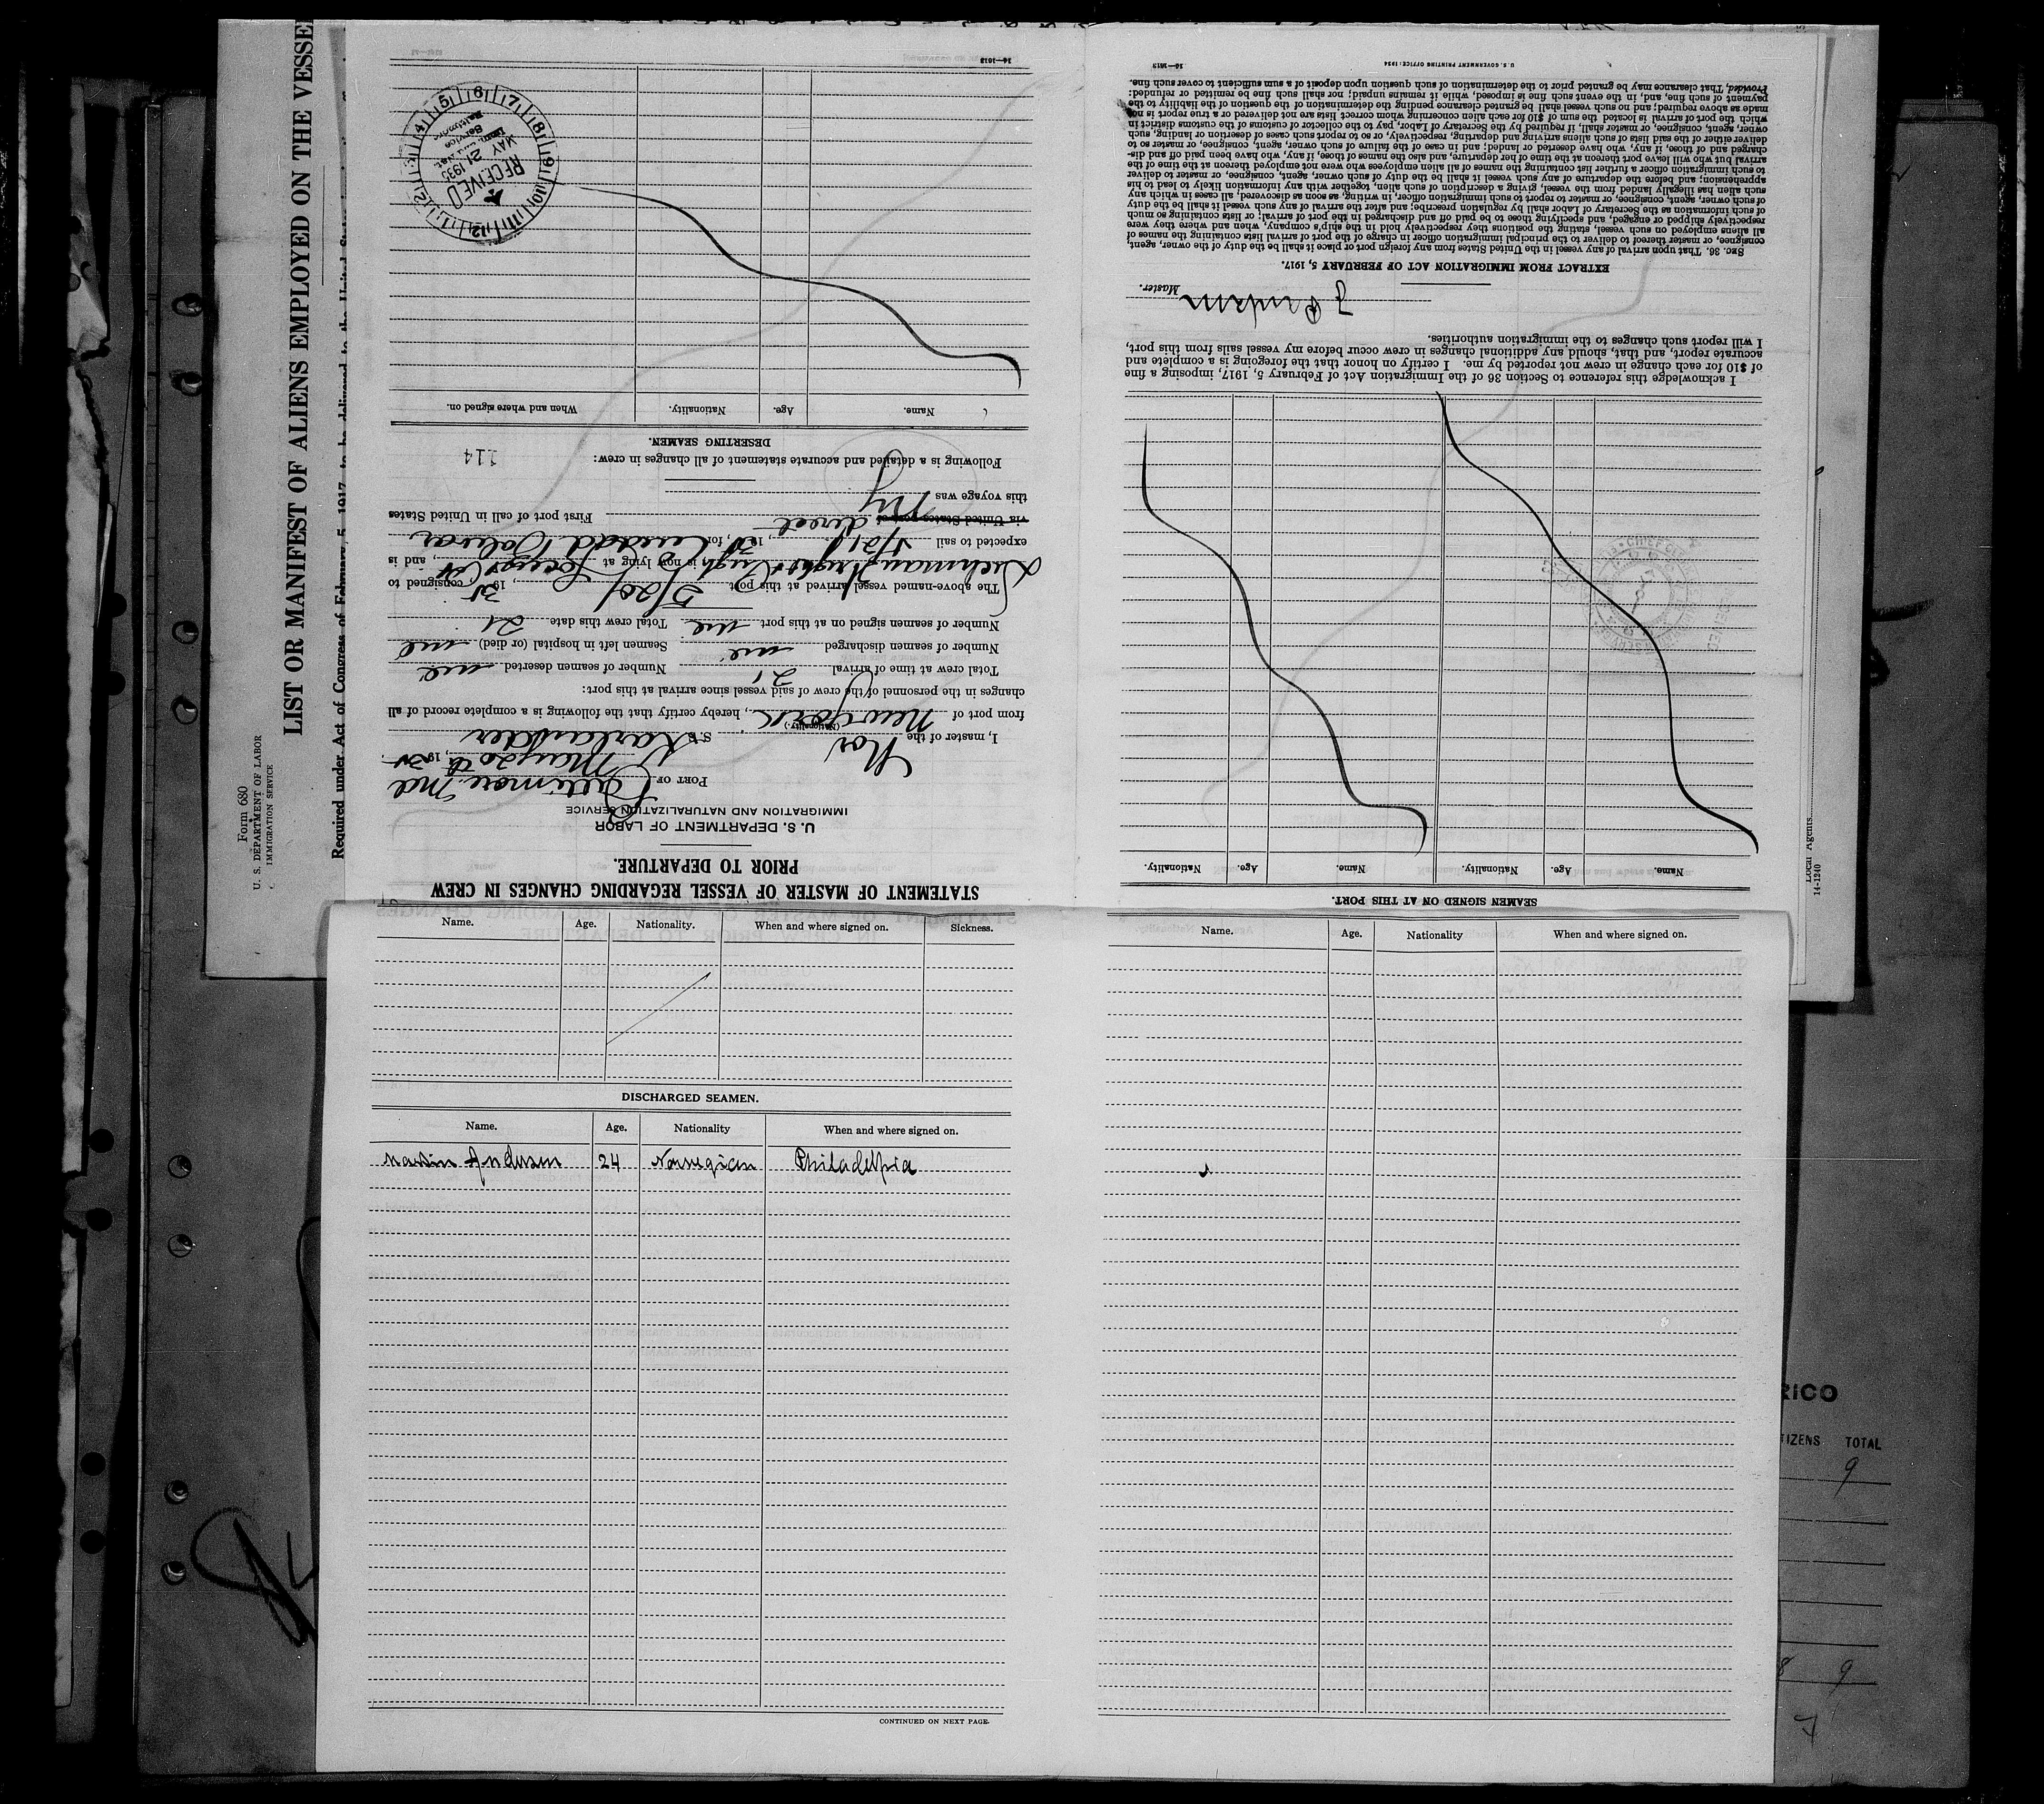 Form 680
U. S. DEPARTMENT OF LABOR
IMMIGRATION SERVICE
LIST OR MANIFEST OF ALIENS EMPLOYED ON THE VESSE
Required under Act of Congress of February 5, 1917, to be delivered to the United States
STATEMENT OF MASTER OF VESSEL REGARDING CHANGES IN CREW
PRIOR TO DEPARTURE.
U. S. DEPARTMENT OF LABOR
IMMIGRATION AND NATURALIZATION SERVICE
PORT OF Baltimore Md
May 20th, 1935
I, master of the Nor S.S.
(Nationality.)
from port of New York, hereby certify that the following is a complete record of all
changes in the personnel of the crew of said vessel since arrival at this port:
Total crew at time of arrival 21 Number of seamen deserted
Number of seamen discharged Seamen left in hospital (or died)
Number of seamen signed on at this port Total crew this date 21
The above-named vessel arrived at this port 5/20/, 1935, consigned to
is now lying at Locust Pt, and is
expected to sail 5/21/, 1935, for Ciudad Bolivar
via United States port of direct First port of call in United States
this voyage was NY
Following is a detailed and accurate statement of all changes in crew:
114
DESERTING SEAMEN.
Name. Age. Nationality. When and where signed on.
RECEIVED
MAY 21 1935
Baltimore
14—1618
SEAMEN SIGNED ON AT THIS PORT.
Name. Age. Nationality. Name. Age. Nationality.
I acknowledge this reference to Section 36 of the Immigration Act of February 5, 1917, imposing a fine
of $10 for each change in crew not reported by me. I certify on honor that the foregoing is a complete and
accurate report, and that, should any additional changes in crew occur before my vessel sails from this port,
I will report such changes to the immigration authorities.
Master.
EXTRACT FROM IMMIGRATION ACT OF FEBRUARY 5, 1917.
SEC. 36. That upon arrival of any vessel in the United States from any foreign port or place it shall be the duty of the owner, agent,
consignee, or master thereof to deliver to the principal immigration officer in charge of the port of arrival lists containing the names of
all aliens employed on such vessel, stating the positions they respectively hold in the ship's company, when and where they were
respectively shipped or engaged, and specifying those to be paid off and discharged in the port of arrival; or lists containing so much
of such information as the Secretary of Labor shall by regulation prescribe; and after the arrival of any such vessel it shall be the duty
of such owner, agent, consignee, or master to report to such immigration officer, in writing, as soon as discovered, all cases in which any
such alien has illegally landed from the vessel, giving a description of such alien, together with any information likely to lead to his
apprehension; and before the departure of any such vessel it shall be the duty of such owner, agent, consignee, or master to deliver
to such immigration officer a further list containing the names of all alien employees who were not employed thereon at the time of the
arrival but who will leave port thereon at the time of her departure, and also the names of those, if any, who have been paid off and dis-
charged and of those, if any, who have deserted or landed; and in case of the failure of such owner, agent, consignee, or master so to
deliver either of the said lists of such aliens arriving and departing, respectively, or so to report such cases of desertion or landing, such
owner, agent, consignee, or master shall, if required by the Secretary of Labor, pay to the collector of customs of the customs district in
which the port of arrival is located the sum of $10 for each alien concerning whom correct lists are not delivered or a true report is not
made as above required; and no such vessel shall be granted clearance pending the determination of the question of the liability to the
payment of such fine, and, in the event such fine is imposed, while it remains unpaid; nor shall such fine be remitted or refunded:
Provided, That clearance may be granted prior to the determination of such question upon deposit of a sum sufficient to cover such fine.
U. S. GOVERNMENT PRINTING OFFICE: 1934
Local Agents.
14-1240
Name. Age. Nationality. When and where signed on. Sickness.
DISCHARGED SEAMEN.
Name. Age. Nationality When and where signed on.
Martin Andersen 24 Norwegian Philadelphia
CONTINUED ON NEXT PAGE.
Name. Age. Nationality When and where signed on.
RICO
TIZENS TOTAL
9
8 9